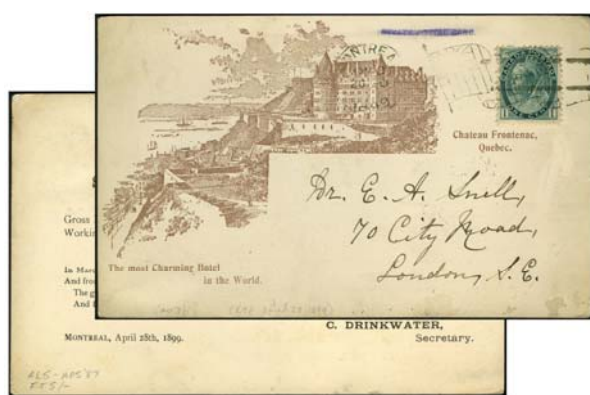 MONTREAL
Chateau Frontenac,
Quebec.
Dr. E. A. Snell,
70 City Road,
London, S.E.
The most Charming Hotel
in the World.
Gross
Workin
In Mar
And fro
The g
And
C. DRINKWATER,
MONTREAL, April 28th, 1899. Secretary.